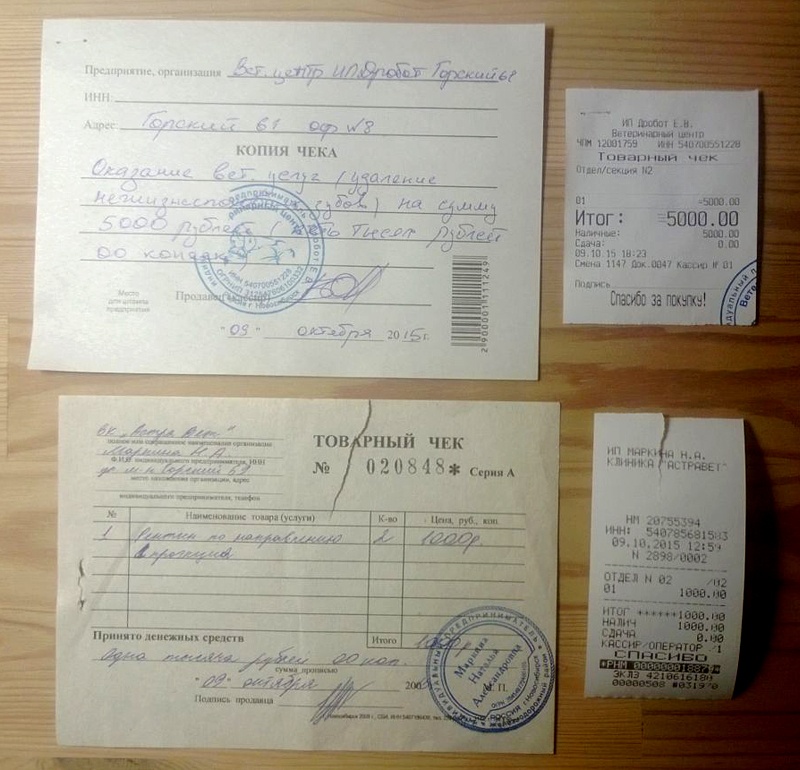 Предприятие, организация Вет. центр ИП Дробот Горский 61
ИНН:
Адрес: Горский 61 оф №8
КОПИЯ ЧЕКА
Оказание вет. услуг (удаление
зубов) на сумму
5000 рублей тысяч рублей
00 копеек
Место
для штампа
предприятия
Продавец
"09" октября 2015г.
ИП Дробот Е.В.
Ветеринарный центр
ЧПМ 12001759 ИНН 540700551228
Товарный чек
Отдел/секция N2
01 =5000.00
Итог: =5000.00
Наличные: 5000.00
Сдача: 0.00
09.10.15 18:23
Смена 1147 Док.0047 Кассир № 01
Подпись
Спасибо за покупку!
вк "Астра Вет."
Маркина Н.А.
Ф.И.О. индивидуального предпринимателя
ул. м-н Горский 59
место нахождения организации, адрес
индивидуального предпринимателя, телефон
ТОВАРНЫЙ ЧЕК
№ 020848* Серия А
№ Наименование товара (услуги) К-во Цена, руб., коп.
1 Рентген по направлению 2 1000р.
проекция
Принято денежных средств Итого
Одна тысяча рублей 00 коп.
сумма прописью
"09" октября 200
М.П.
Подпись продавца
Маркина
Наталья
Александровна
ИП МАРКИНА Н.А.
КЛИНИКА "АСТРАВЕТ"
НМ 20755394
ИНН: 540785681583
09.10.2015 12:59
N 2898/0002
ОТДЕЛ N 02 /02
01 1000.00
ИТОГ ******1000.00
НАЛИЧ 1000.00
СДАЧА 0.00
КАССИР/ОПЕРАТОР /1
СПАСИБО
ЭКЛЗ 4210616180
00000508 #031970